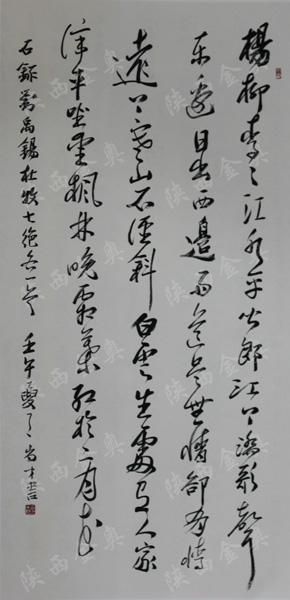 楊柳青々江水平聞郎江上踏歌聲
東邊日出西邊雨道是無情卻有情
遠上寒山石徑斜白雲生處有人家
停車坐愛楓林晚霜葉紅於二月花
右錄劉禹錫杜牧七絕各一首 壬午夏 尚才書
陕西金奥